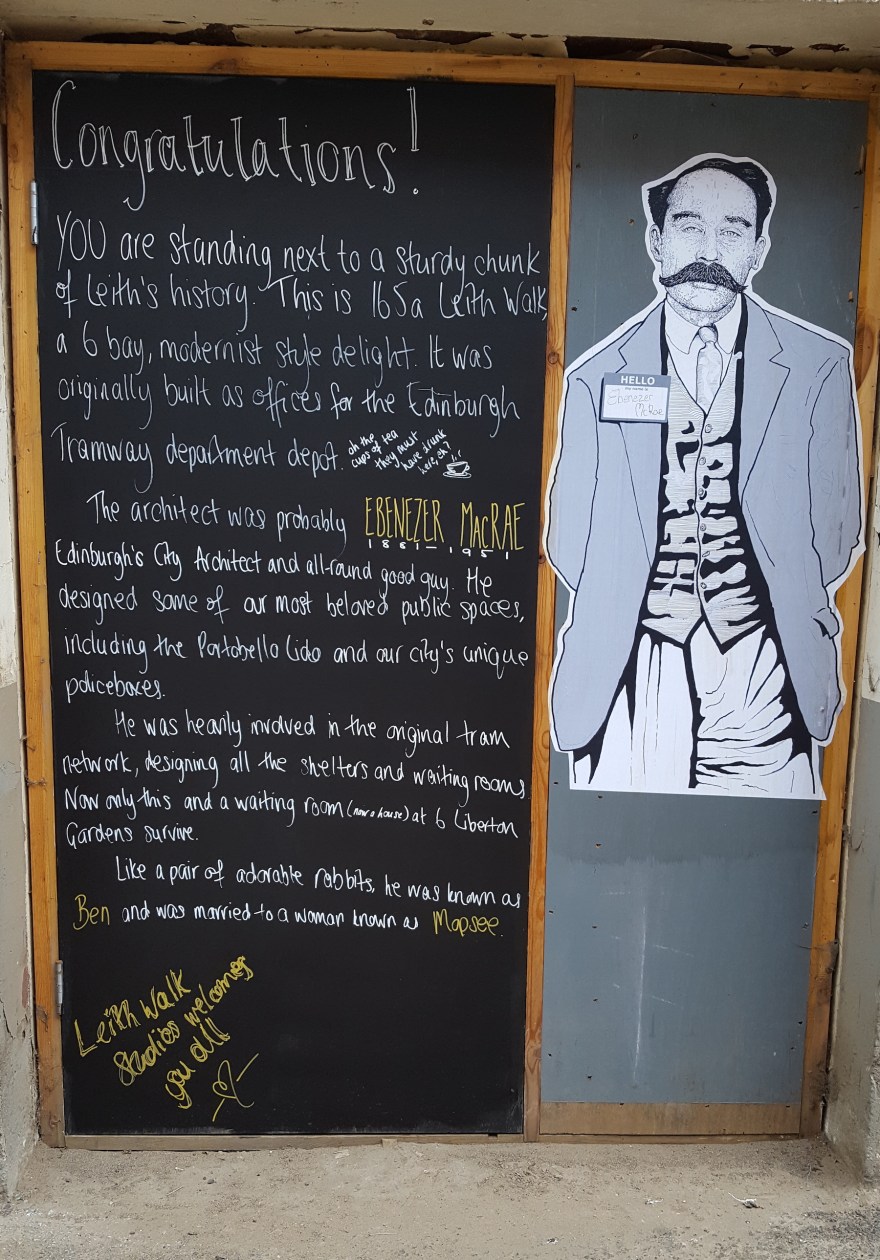 Congratulations!
YOU are standing next to a sturdy chunk
of Leith's history. This is 165a Leith Walk,
a 6 bay, modernist style delight. It was
originally built as offices for the Edinburgh
Tramway department depot.
oh the
cups of tea
they must
have drunk
here, eh?
The architect was probably EBENEZER MacRAE
1881-1951
Edinburgh's City Architect and all-round good guy. He
designed some of our most beloved public spaces,
including the Portobello Lido and our city's unique
policeboxes.
He was heavily involved in the original tram
network, designing all the shelters and waiting rooms
Now only this and a waiting room (now a house) at 6 Liberton
Gardens survive.
Like a pair of adorable rabbits, he was known as
Ben and was married to a woman known as Mopsee.
Leith Walk
Studios welcomes
you all
HELLO
my name is
Ebenezer
McRae